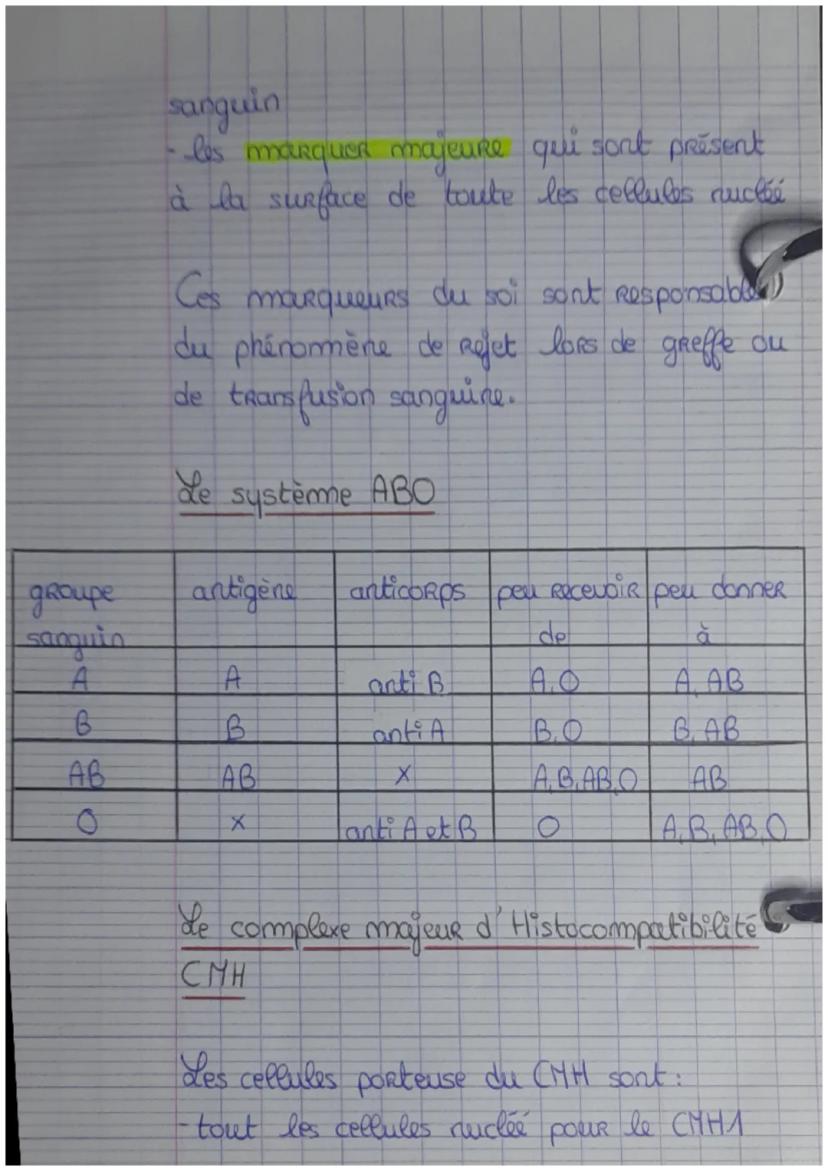 sanguin
- les marquer majeure qui sont présent
à la surface de toute les cellules nucléé
Ces marqueurs du soi sont responsable
du phénomène de rejet lors de greffe ou
de transfusion sanguine.
Le système ABO
groupe sanguin | antigène | anticorps | peu recevoir de | peu donner à
A | A | anti B | A, O | A, AB
B | B | anti A | B, O | B, AB
AB | AB | x | A, B, AB, O | AB
O | x | anti A et B | O | A, B, AB, O
Le complexe majeur d'Histocompatibilité
CMH
Les cellules porteuse du CMH sont :
- tout les cellules nucléé pour le CMH1